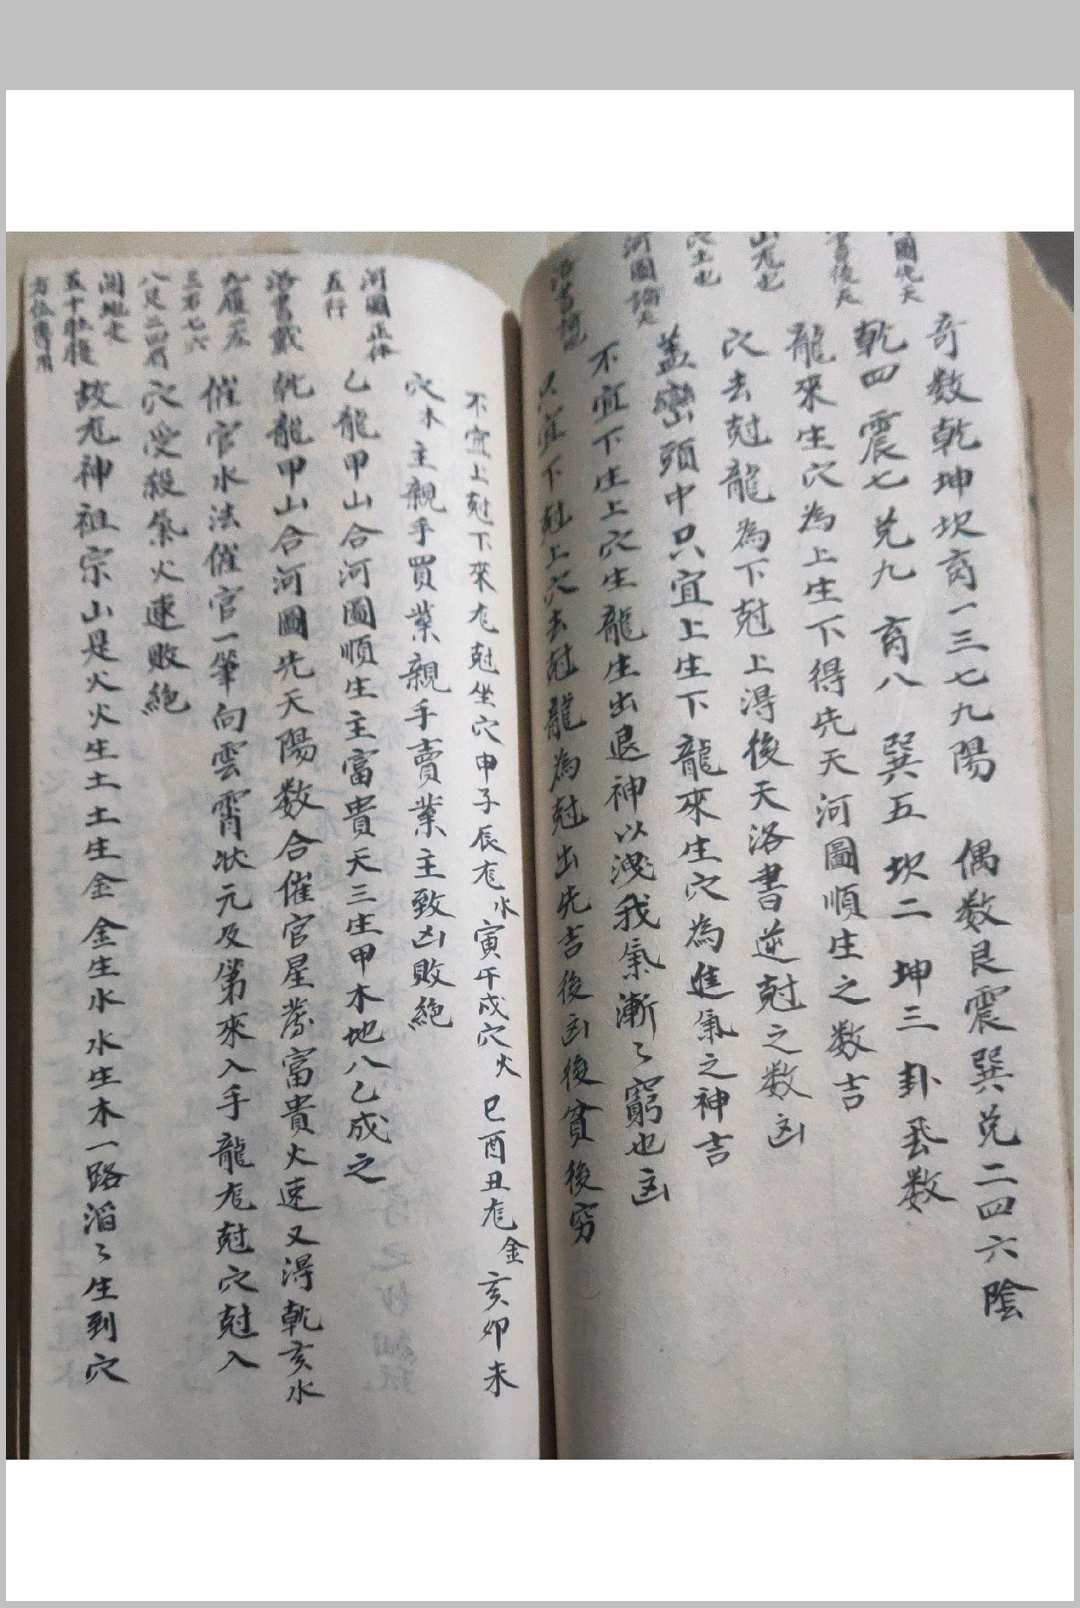 奇数乾坤坎离一三七九陽　偶数艮震巽兑二四六陰
乾四　震七兑九　离八　巽五　坎二　坤三　卦炁数
龍來生穴為上生下得先天河圖順生之数吉
穴去尅龍為下尅上得後天洛書逆尅之数凶
盖巒頭中只宜上生下龍來生穴為進氣之神吉
不宜下生上穴生龍生出退神以洩我氣漸〻窮也凶
只宜下尅上穴去尅龍為尅出先吉後凶後貧後穷
不宜上尅下來龙尅坐穴申子辰龙水寅午戌穴火　巳酉丑龙金　亥卯未
穴木主親手買業親手賣業主致凶敗絶
乙龍甲山合河圖順生主富貴天三生甲木地八乙成之
乾龍甲山合河圖先天陽数合催官星發富貴火速又得乾亥水
催官水法催官一筆向雲霄狀元及第來入手龍龙尅穴尅入
穴受殺氣火速敗絶
故龙神祖宗山是火火生土土生金　金生水水生木一路滔〻生到穴
河圖先天
山龙也
穴土也
河圖
河圖正体
五行
洛書戴
九履一
三右七六
八足二四肩
五十